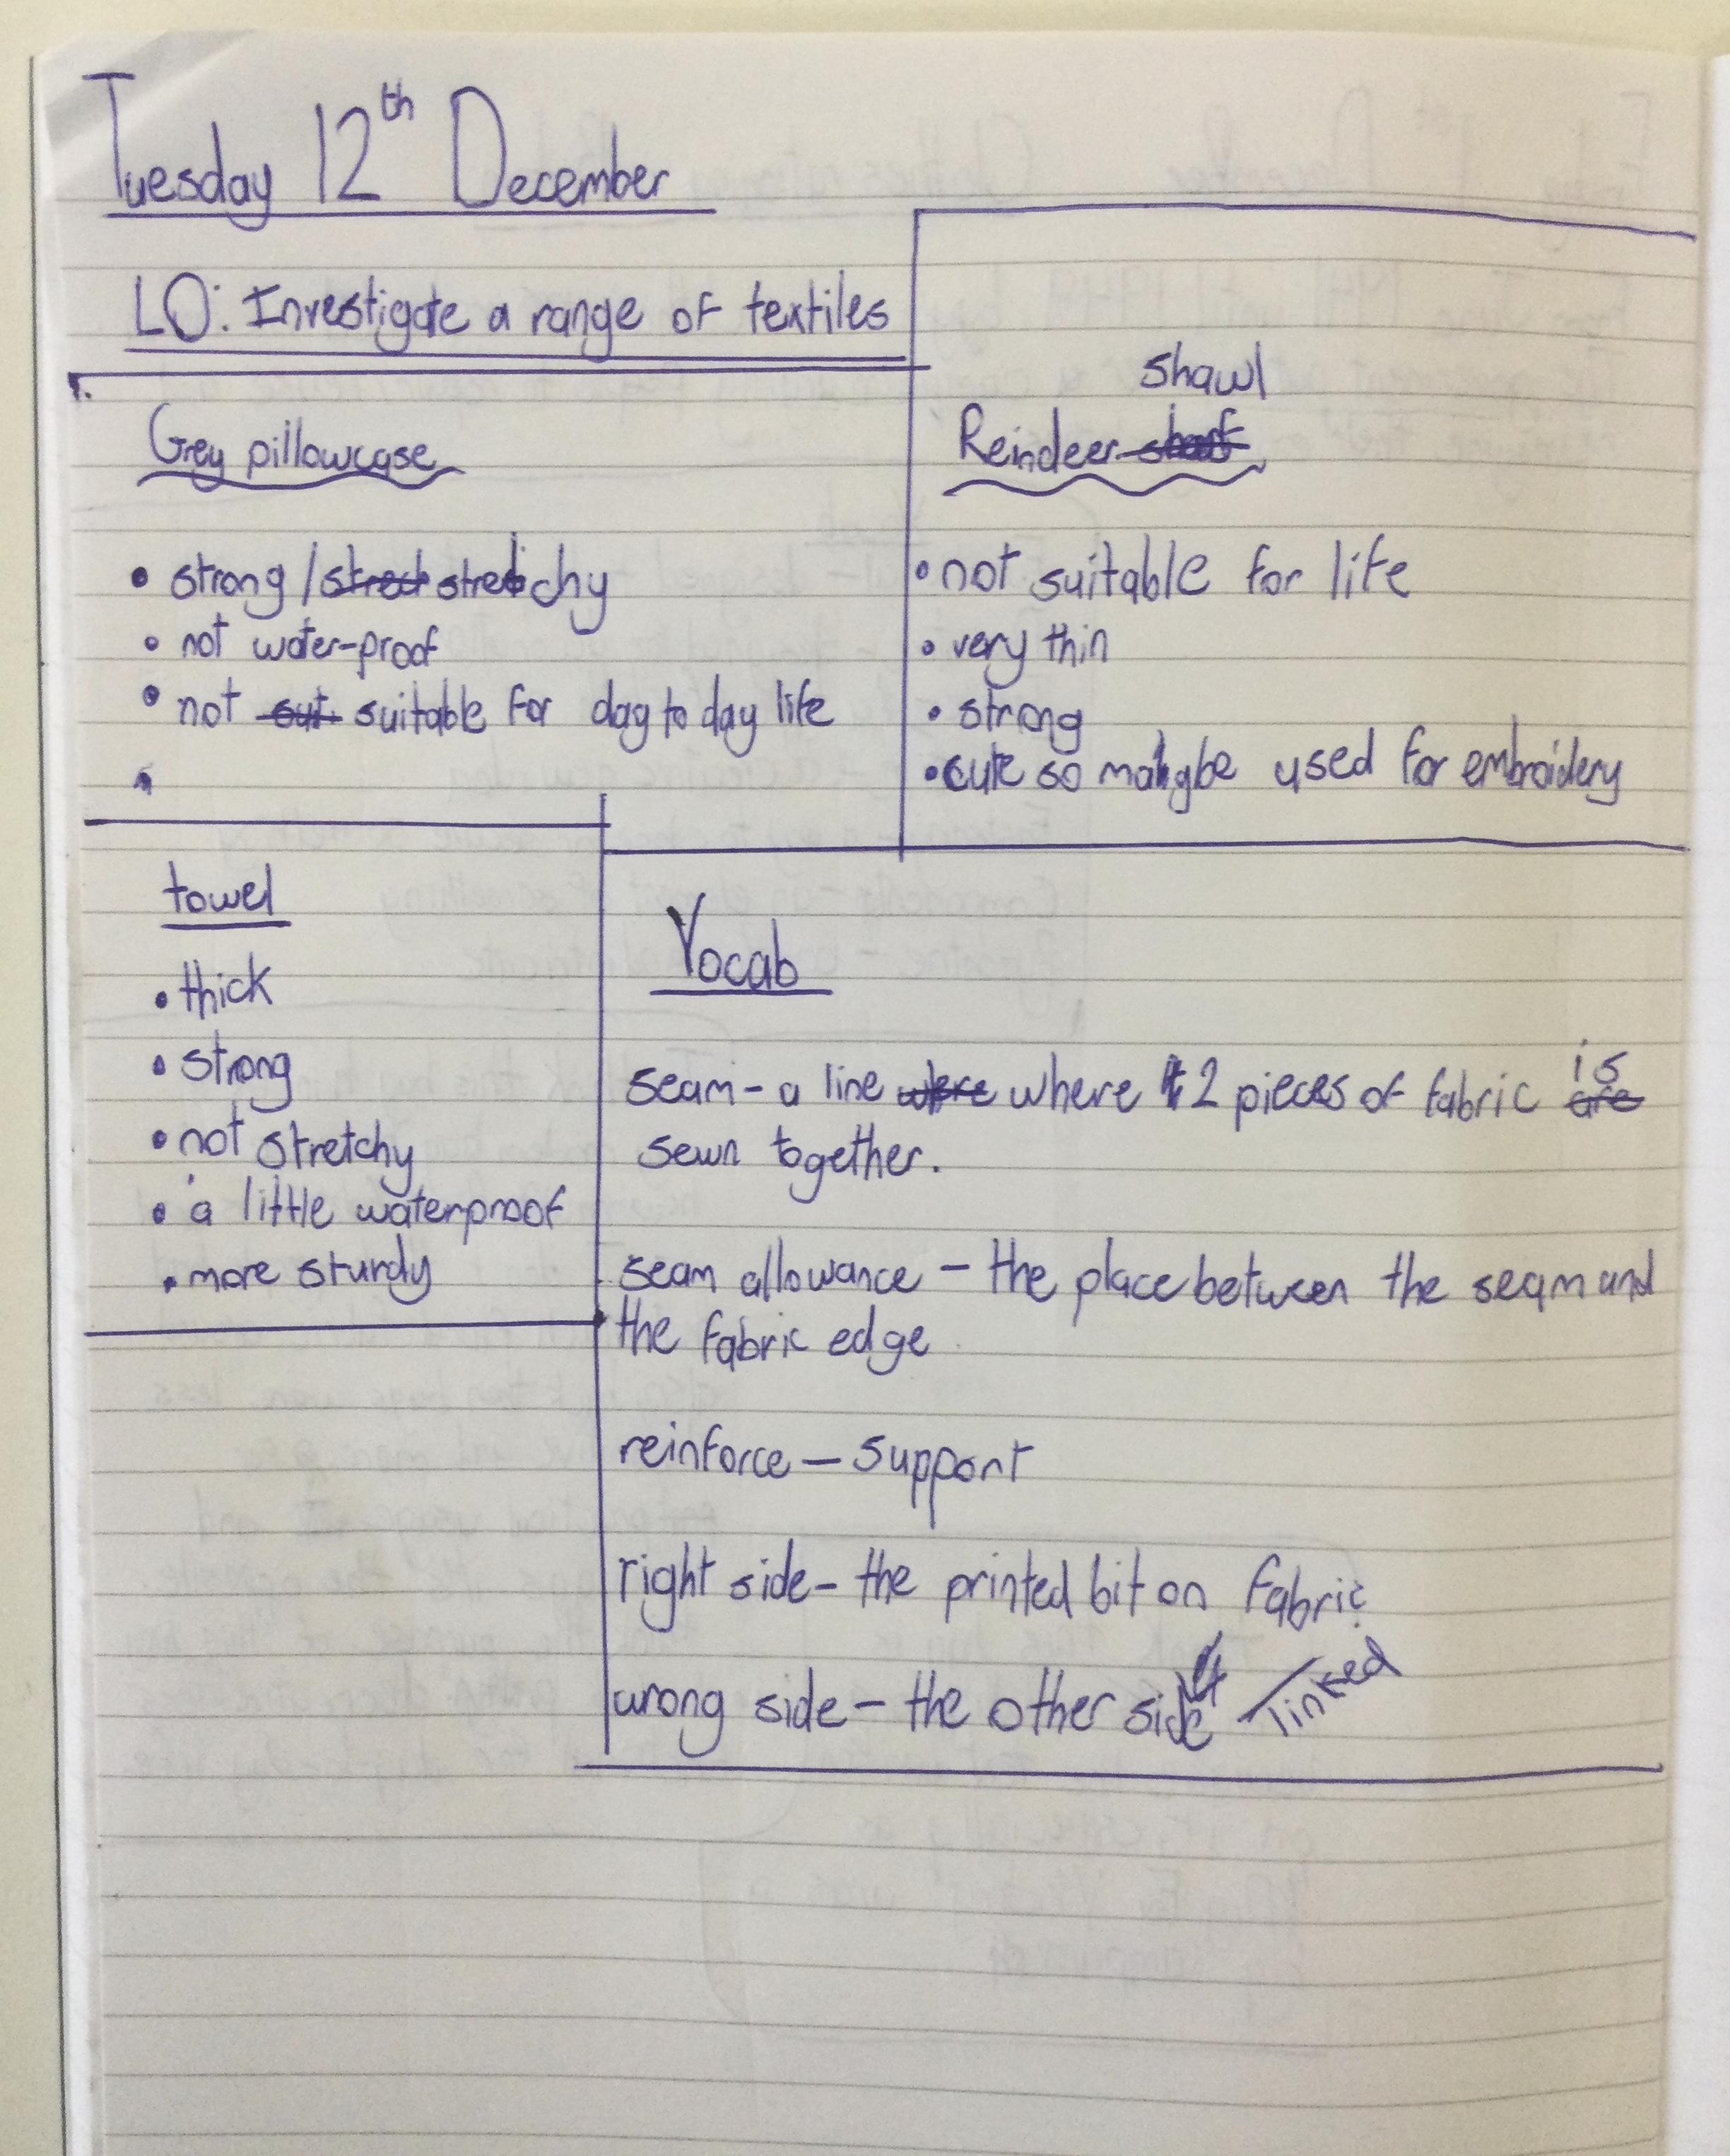 Tuesday 12th December
LO: Investigate a range of textiles
Grey pillowcase
• strong / strect stretchy
• not water-proof
• not sut suitable for day to day life
shawl
Reindeer
• not suitable for life
• very thin
• strong
• cute so maybe used for embroidery
towel
• thick
• strong
• not stretchy
• a little waterproof
• more sturdy
Vocab
seam - a line where where 2 pieces of fabric is are
sewn together.
seam allowance - the place between the seam and
the fabric edge
reinforce - support
right side - the printed bit on fabric
wrong side - the other side linked